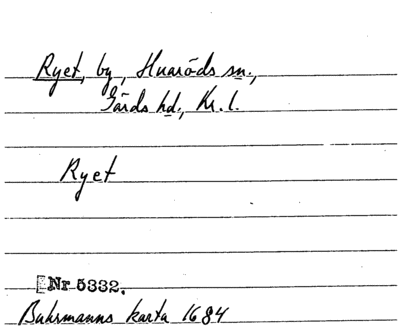 Ryet, by, Huaröds sn.,
Gärds hd., Kr. l.
Ryet
Nr 5332.
Buhrmanns karta 1684